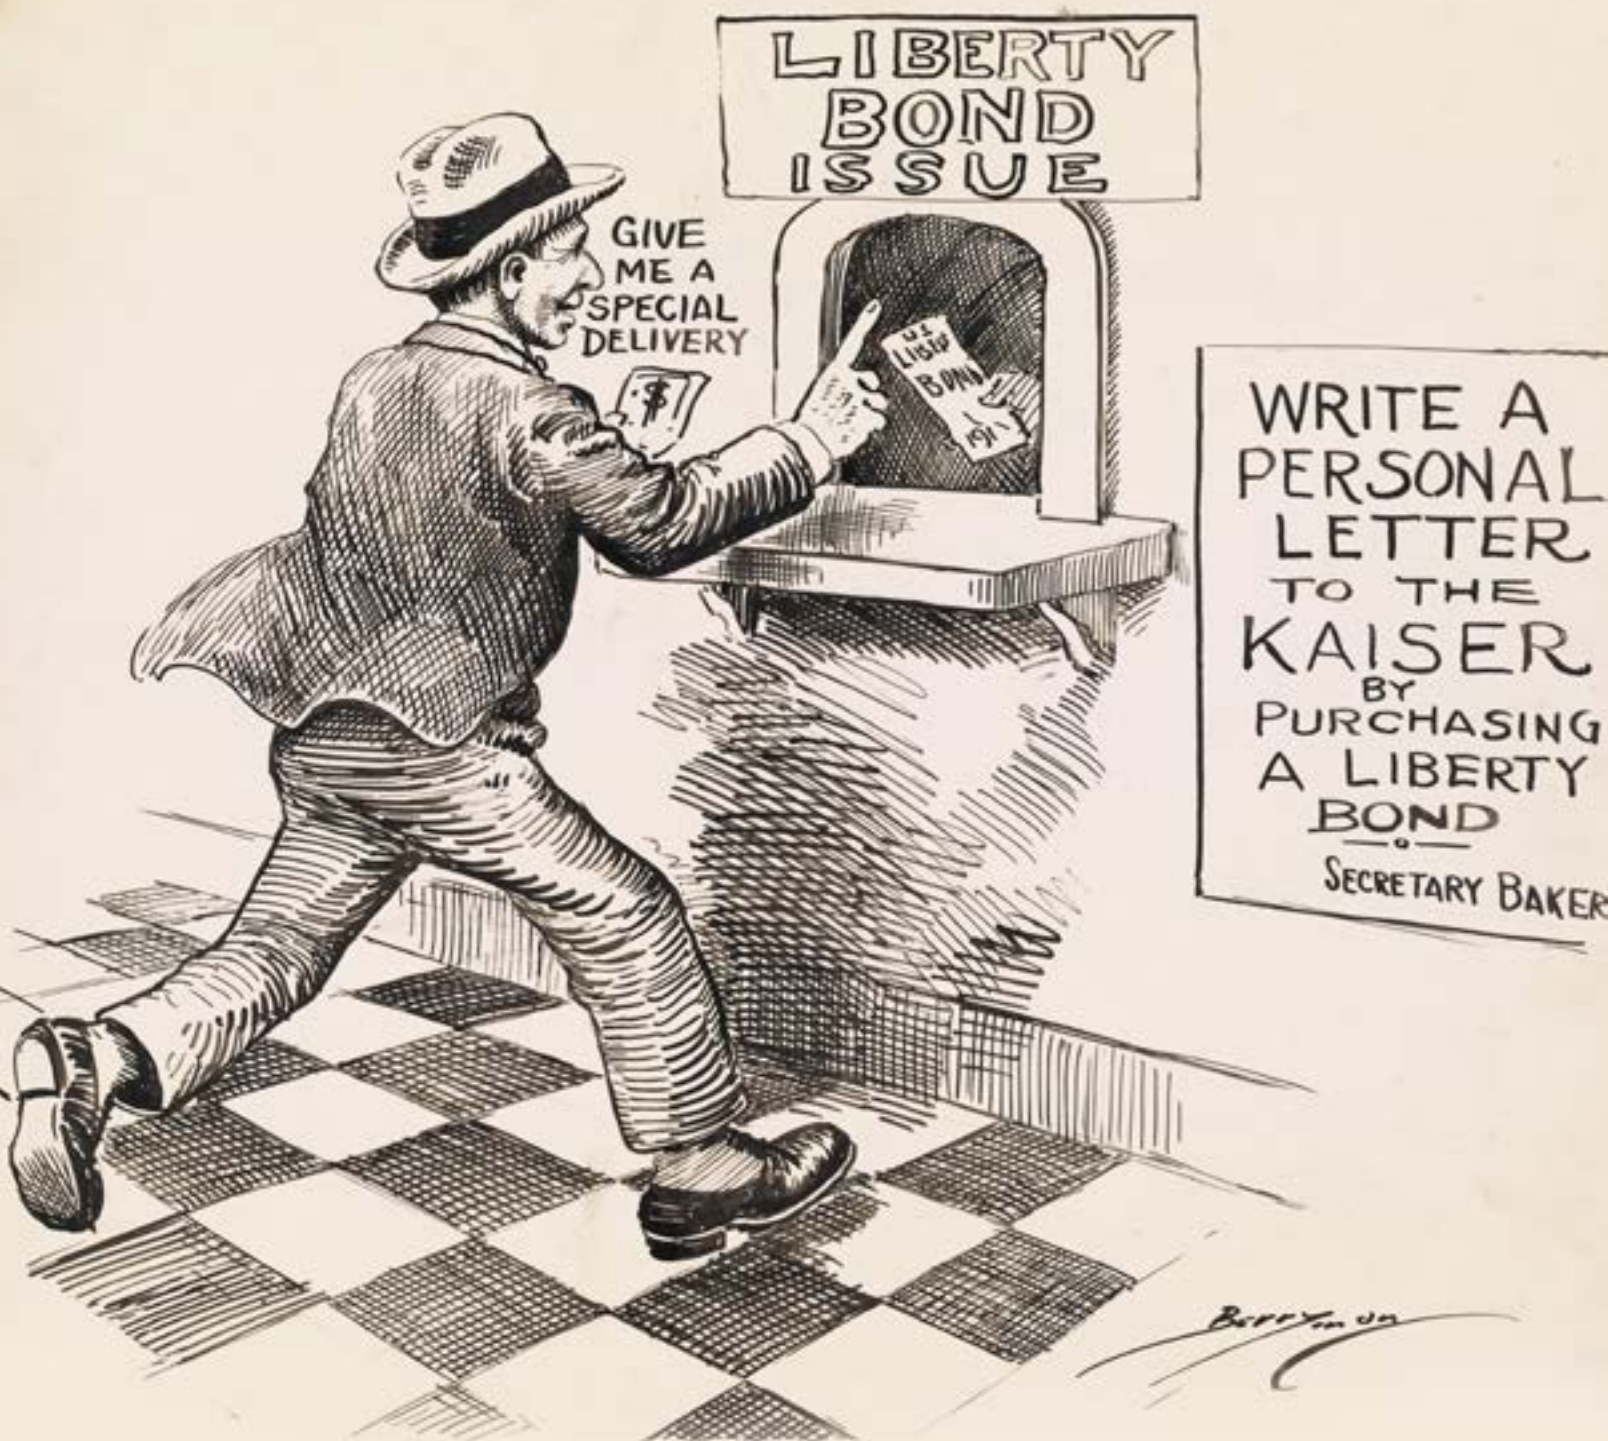 LIBERTY
BOND
ISSUE
GIVE
ME A
SPECIAL
DELIVERY
$
U S
BOND
WRITE A
PERSONAL
LETTER
TO THE
KAISER
BY
PURCHASING
A LIBERTY
BOND
SECRETARY BAKER
BERRYman